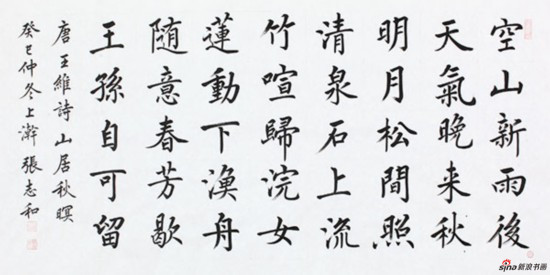 空山新雨後
天氣晚来秋
明月松間照
清泉石上流
竹喧歸浣女
蓮動下漁舟
随意春芳歇
王孫自可留
唐王維詩山居秋暝
癸巳仲冬上澣張志和
sina新浪书画